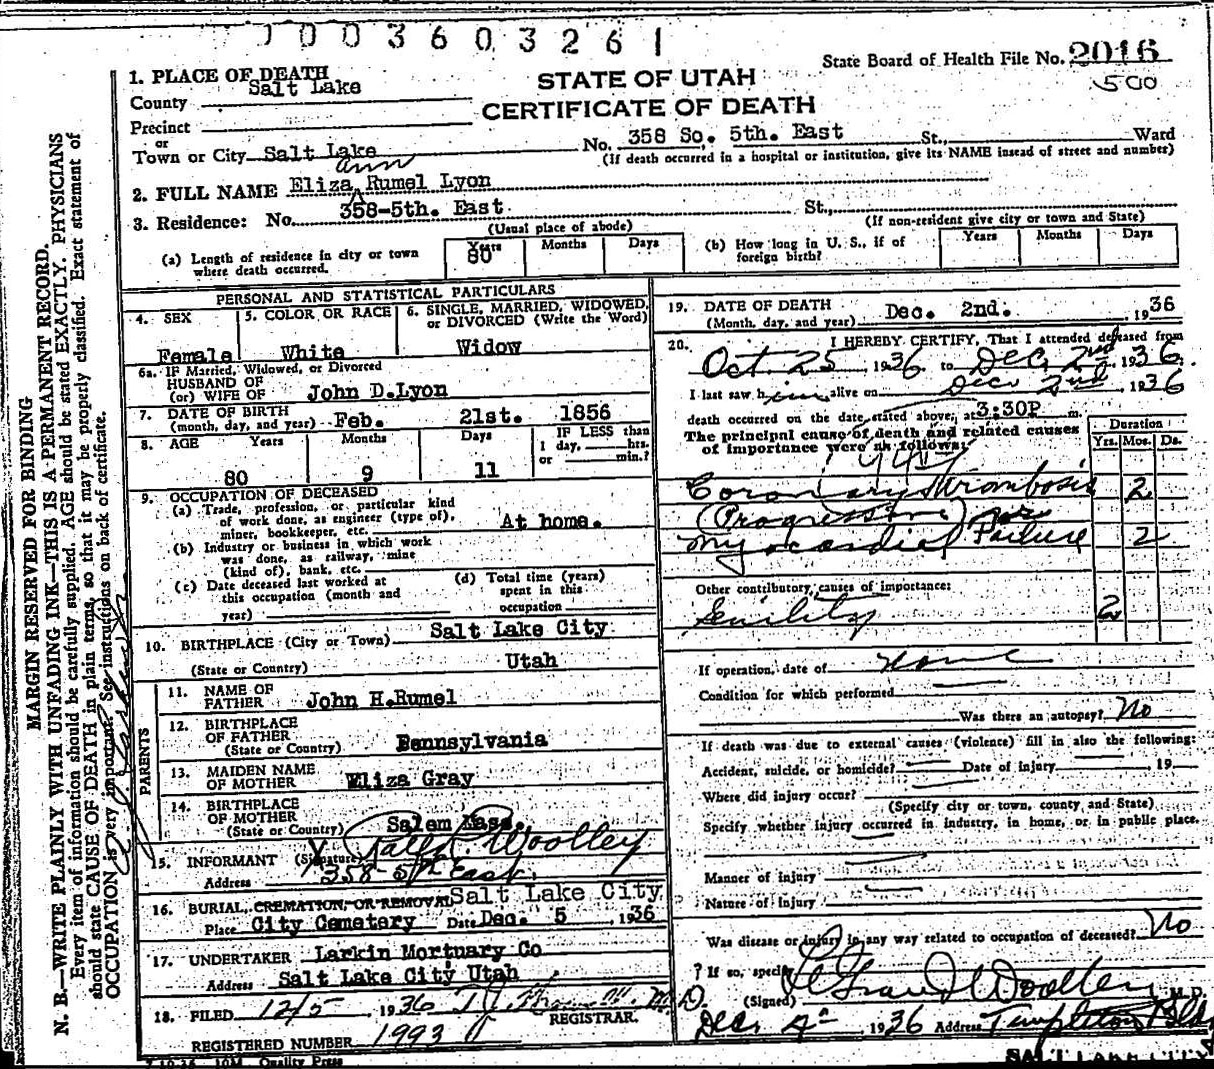 1003603261
State Board of Health File No. 2016
500
STATE OF UTAH
CERTIFICATE OF DEATH
1. PLACE OF DEATH
County Salt Lake
Precinct
or
Town or City Salt Lake No. 358 So. 5th. East St., Ward
(If death occurred in a hospital or institution, give its NAME insead of street and number)
2. FULL NAME Eliza Ann Rumel Lyon
3. Residence: No. 358-5th. East St.,
(Usual place of abode) (If non-resident give city or town and State)
(a) Length of residence in city or town where death occurred. Years 80 Months Days
(b) How long in U. S., if of foreign birth? Years Months Days
PERSONAL AND STATISTICAL PARTICULARS
4. SEX Female
5. COLOR OR RACE White
6. SINGLE, MARRIED, WIDOWED, or DIVORCED (Write the Word) Widow
6a. IF Married, Widowed, or Divorced
HUSBAND OF
(or) WIFE OF John D.Lyon
7. DATE OF BIRTH
(month, day, and year) Feb. 21st. 1856
8. AGE Years Months Days IF LESS than
1 day, hrs.
or min.?
80 9 11
9. OCCUPATION OF DECEASED
(a) Trade, profession, or particular kind
of work done, as engineer (type of),
miner, bookkeeper, etc. At home.
(b) Industry or business in which work
was done, as railway, mine
(kind of), bank, etc.
(c) Date deceased last worked at
this occupation (month and
year)
(d) Total time (years)
spent in this
occupation
10. BIRTHPLACE (City or Town) Salt Lake City
(State or Country) Utah
PARENTS
11. NAME OF
FATHER John H.Rumel
12. BIRTHPLACE
OF FATHER
(State or Country) Pennsylvania
13. MAIDEN NAME
OF MOTHER Eliza Gray
14. BIRTHPLACE
OF MOTHER
(State or Country) Salem Mass.
15. INFORMANT (Signature) Woolley
Address 358-5th East
16. BURIAL, CREMATION, OR REMOVAL Salt Lake City
Place City Cemetery Date Dec. 5 1936
17. UNDERTAKER Larkin Mortuary Co
Address Salt Lake City Utah
18. FILED 12/5 1936
REGISTRAR.
REGISTERED NUMBER 1993
7-10-36 10M Quality Press
19. DATE OF DEATH
(Month, day, and year) Dec. 2nd. 1936
20. I HEREBY CERTIFY, That I attended deceased from
Oct. 25 1936 to Dec. 2nd 1936.
I last saw him alive on Dec 2nd, 1936
death occurred on the date stated above, at 3:30P m.
The principal cause of death and related causes
of importance were as follows:
Duration
Yrs. Mos. Ds.
Coronary thrombosis 2
(Progressive)
Myocardial Failure 2
Other contributory causes of importance:
Senility 2
If operation, date of none
Condition for which performed
Was there an autopsy? No
If death was due to external causes (violence) fill in also the following:
Accident, suicide, or homicide? Date of injury , 19
Where did injury occur?
(Specify city or town, county and State)
Specify whether injury occurred in industry, in home, or in public place.
Manner of injury
Nature of injury
Was disease or injury in any way related to occupation of deceased? No
? If so, specify
(Signed) M.D.
Dec. 4th 1936 Address Templeton Bldg
SALT LAKE CITY
MARGIN RESERVED FOR BINDING
N. B.—WRITE PLAINLY WITH UNFADING INK—THIS IS A PERMANENT RECORD.
Every item of information should be carefully supplied. AGE should be stated EXACTLY. PHYSICIANS
should state CAUSE OF DEATH in plain terms, so that it may be properly classified. Exact statement of
OCCUPATION is very important. See instructions on back of certificate.